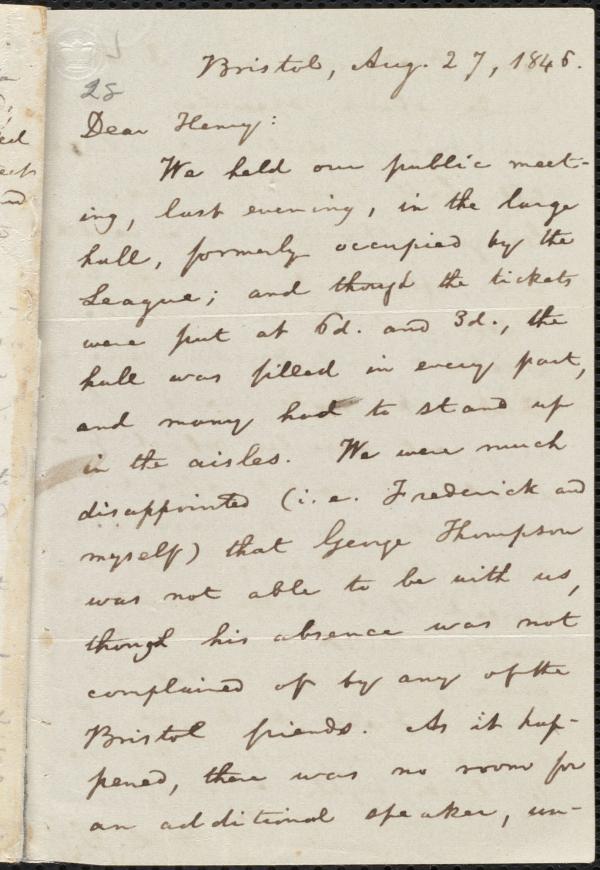 Bristol, Aug. 27, 1846.
28
Dear Henry:
We held our public meet-
ing, last evening, in the large
hall, formerly occupied by the
League; and though the tickets
were put at 6d. and 3d., the
hall was filled in every part,
and many had to stand up
in the aisles. We were much
disappointed (i.e. Frederick and
myself) that George Thompson
was not able to be with us,
though his absence was not
complained of by any of the
Bristol friends. As it hap-
pened, there was no room for
an additional speaker, un-